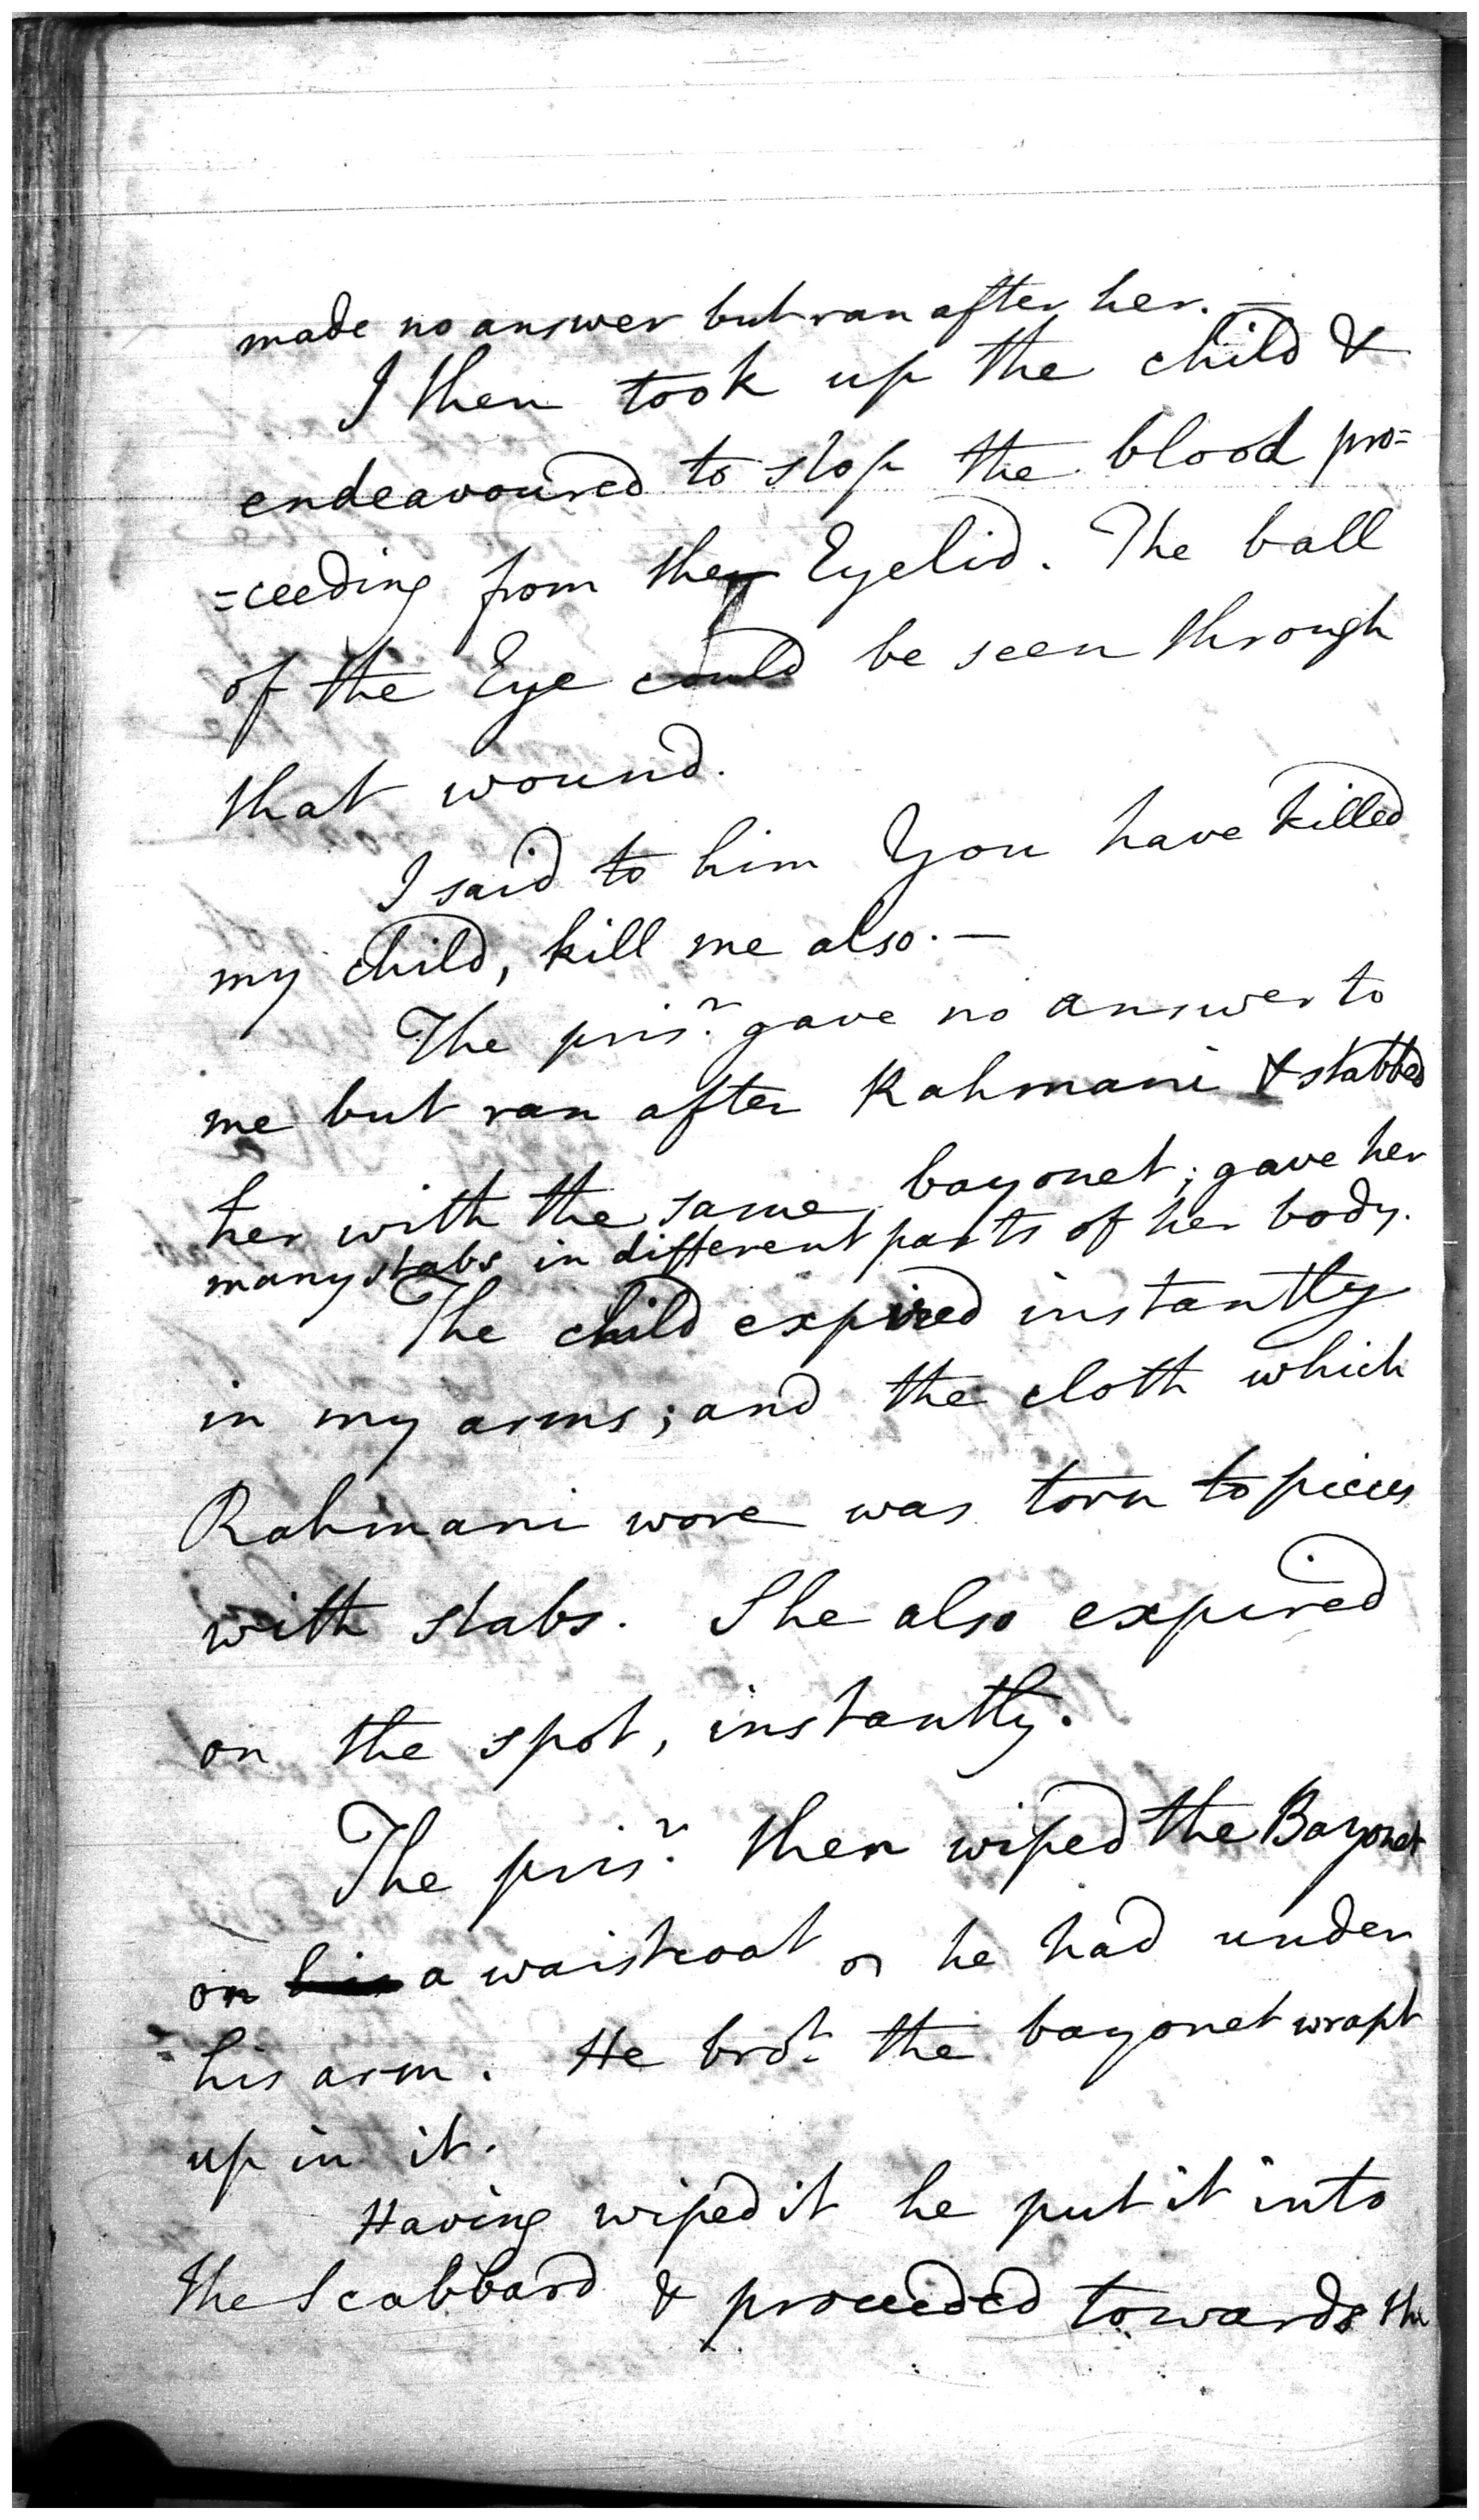 made no answer but ran after her. —
I then took up the child &
endeavoured to stop the blood pro=
=ceeding from the Eyelid. The ball
of the Eye could be seen through
that wound.
I said to him You have killed
my child, kill me also. —
The prisr. gave no answer to
me but ran after Rahmani & stabbed
her with the same bayonet; gave her
many stabs in different parts of her body.
The child expired instantly
in my arms; and the cloth which
Rahmani wore was torn to pieces
with stabs. She also expired
on the spot, instantly.
The prisr. then wiped the Bayonet
on his a waistcoat he had under
his arm. He brot. the bayonet wrapt
up in it.
Having wiped it he put it into
the Scabbard & proceeded towards the